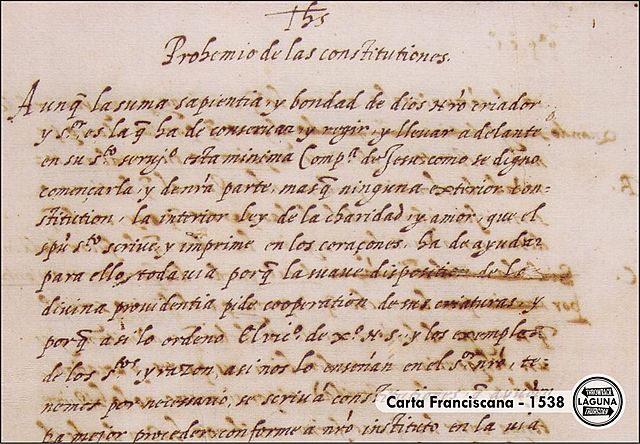 Ihs
Prohemio de las constitutiones.
Aunq̃ la suma sapientia, y bondad de dios nr̃o criador
y sr̃ es la q̃ ha de conseruar, y regir, y lleuar adelante
en su sto seruiº esta minima Compª de Jesu, como se digno
comencarla, y de nr̃a parte, mas q̃ ninguna exterior con-
stitution, la interior ley de la charidad, y amor, que el
spũ sto scriue, y imprime en los coraçones, ha de ayudar
para ello, toda uia porq̃ la suaue disposition de la
diuina prouidentia pide cooperation de sus criaturas, y
porq̃ asi lo ordeno El vicº de xº N. S., y los exemplos
de los stos y razon, asi nos lo enseñan en el sr̃ nr̃o, te-
nemos por necessario, se scriuã
pa mejor proceder, conforme a nr̃o instituto en la uia
Carta Franciscana - 1538
LAGUNA